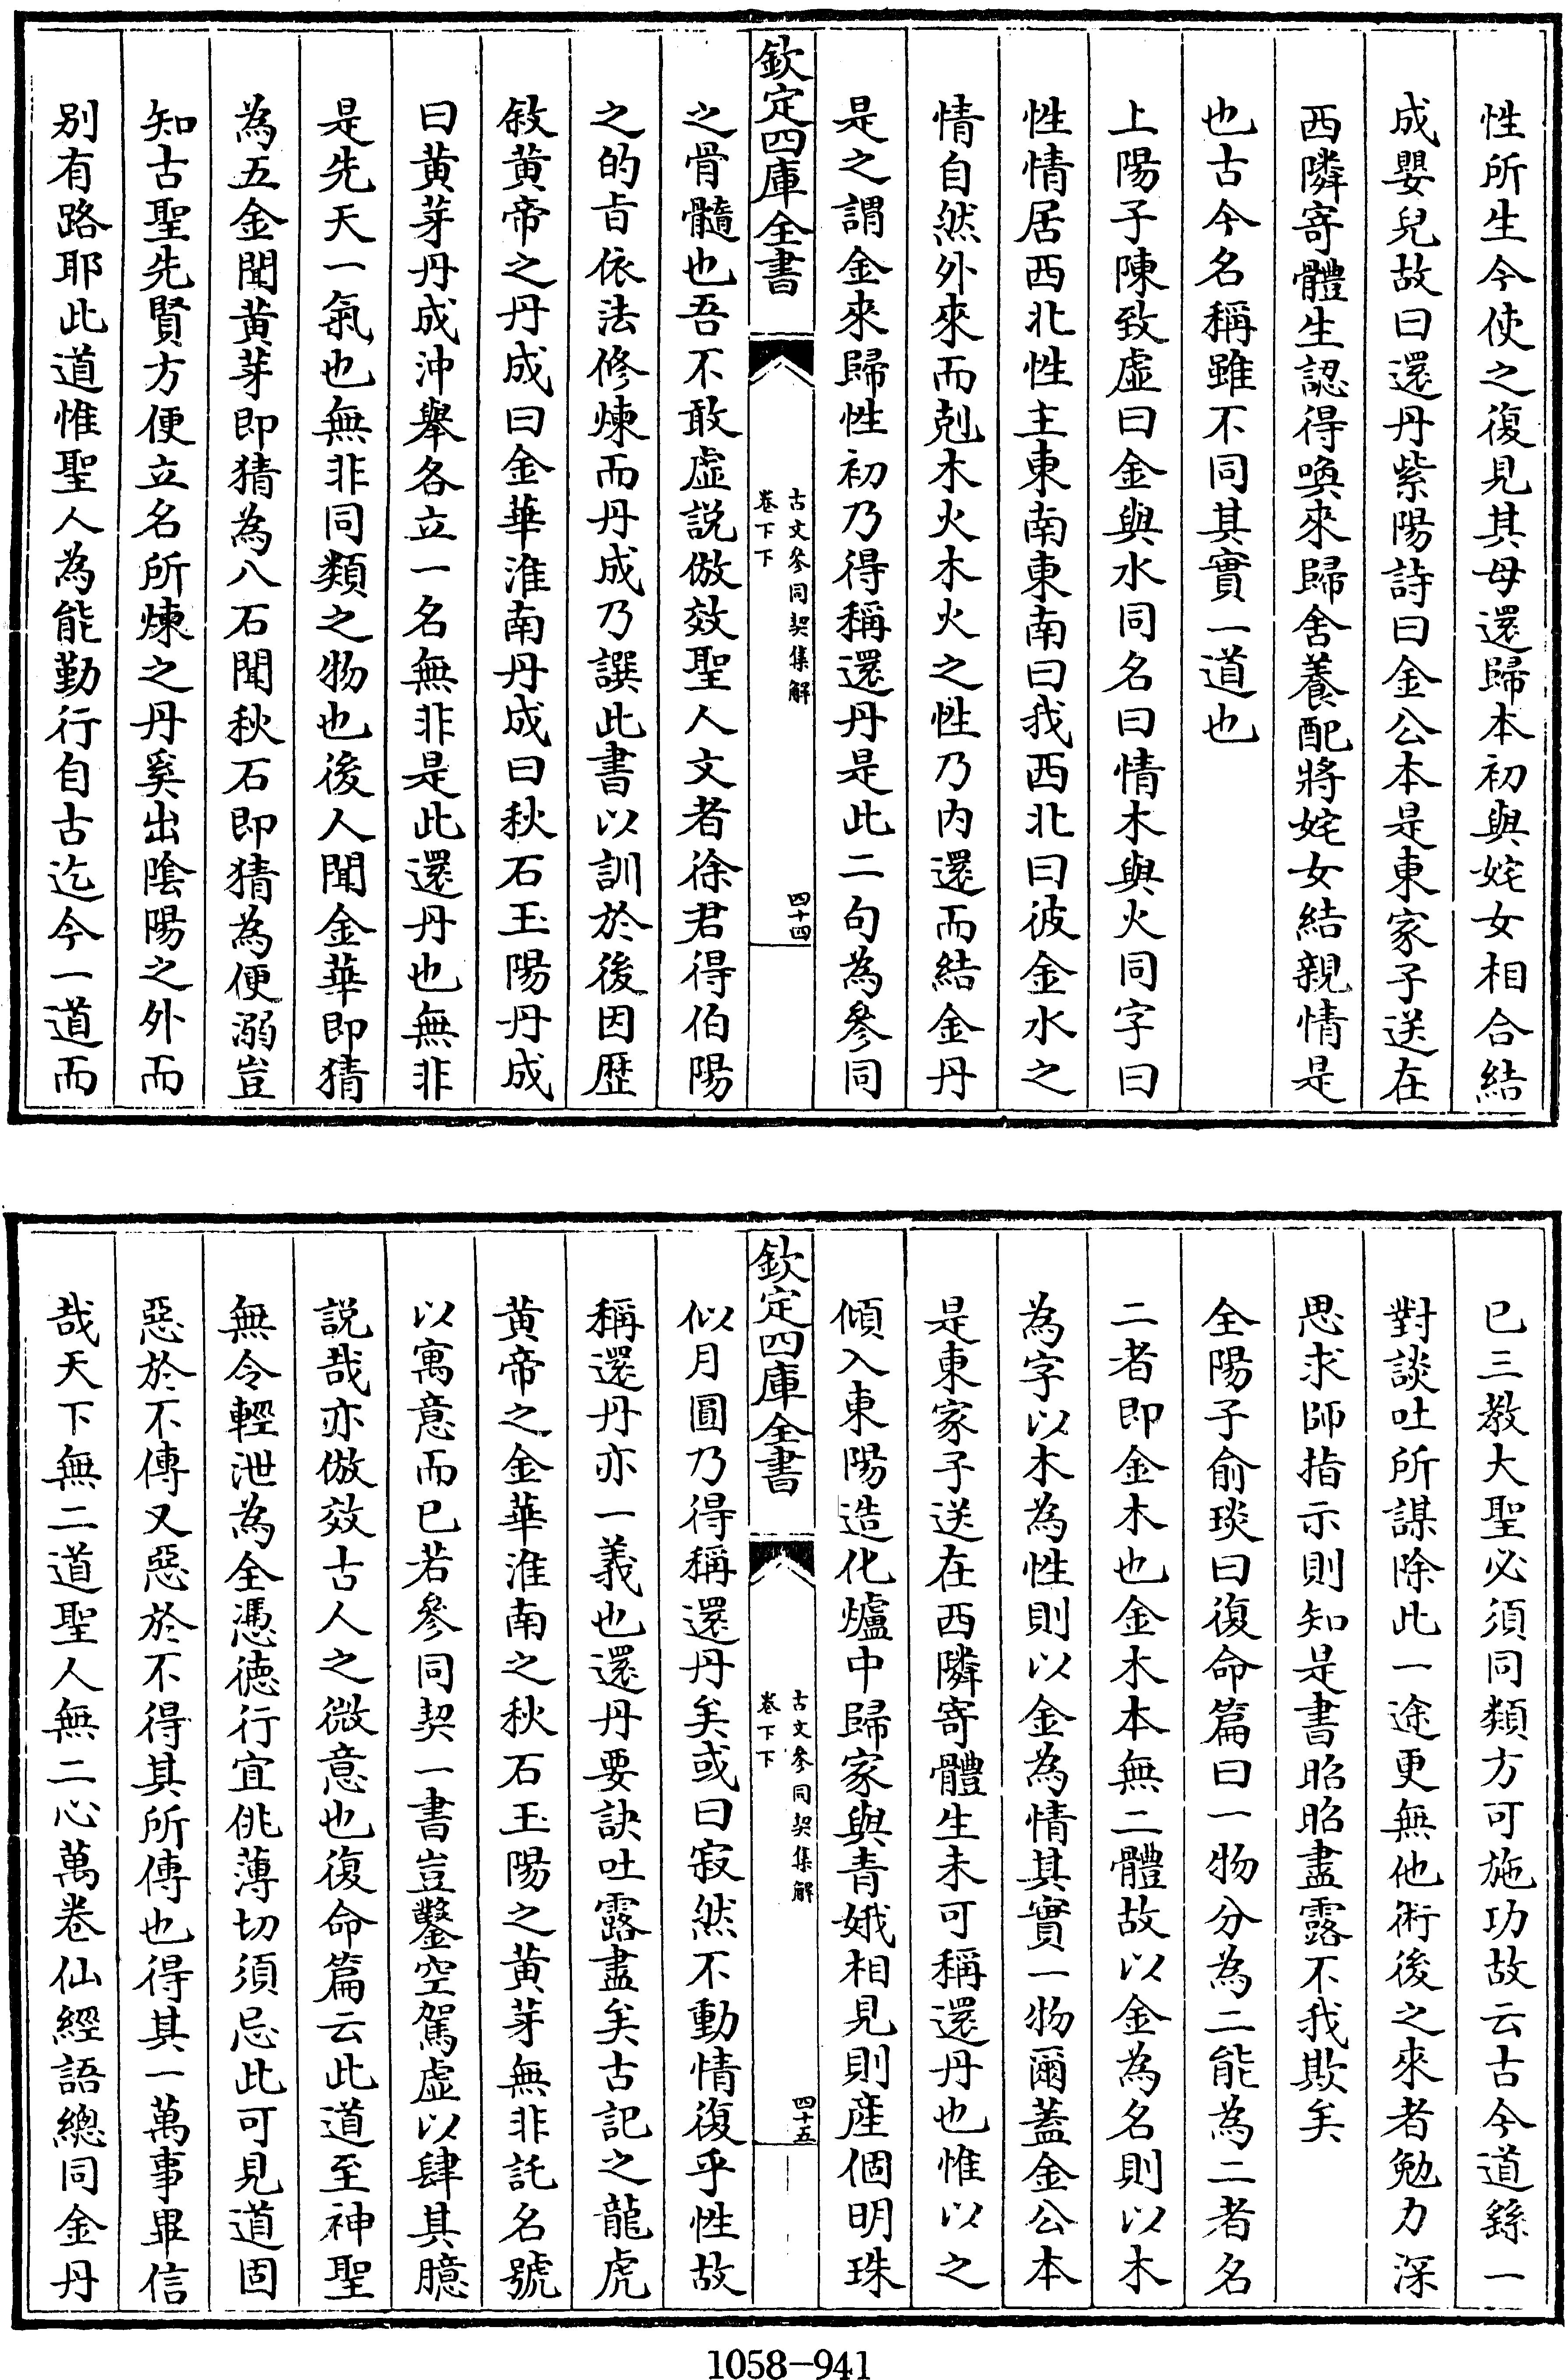 性所生今使之復見其母還歸本初與姹女相合結
成嬰兒故曰還丹紫陽詩曰金公本是東家子送在
西隣寄體生認得喚來歸舍養配將姹女結親情是
也古今名稱雖不同其實一道也
上陽子陳致虛曰金與水同名曰情木與火同字曰
性情居西北性主東南東南曰我西北曰彼金水之
情自然外來而剋木火木火之性乃内還而結金丹
是之謂金來歸性初乃得稱還丹是此二句為參同
欽定四庫全書
古文參同契集解
卷下下
四十四
之骨髓也吾不敢虛説倣效聖人文者徐君得伯陽
之的㫖依法修煉而丹成乃譔此書以訓於後因歴
敍黄帝之丹成曰金華淮南丹成曰秋石玉陽丹成
曰黄芽丹成沖舉各立一名無非是此還丹也無非
是先天一氣也無非同類之物也後人聞金華即猜
為五金聞黄芽即猜為八石聞秋石即猜為便溺豈
知古聖先賢方便立名所煉之丹奚出陰陽之外而
别有路耶此道惟聖人為能勤行自古迄今一道而
已三教大聖必須同類方可施功故云古今道繇一
對談吐所謀除此一途更無他術後之來者勉力深
思求師指示則知是書昭昭盡露不我欺矣
全陽子俞琰曰復命篇曰一物分為二能為二者名
二者即金木也金木本無二體故以金為名則以木
為字以木為性則以金為情其實一物爾蓋金公本
是東家子送在西隣寄體生未可稱還丹也惟以之
傾入東陽造化爐中歸家與青娥相見則産個明珠
欽定四庫全書
古文參同契集解
卷下下
四十五
似月圓乃得稱還丹矣或曰寂然不動情復乎性故
稱還丹亦一義也還丹要訣吐露盡矣古記之龍虎
黄帝之金華淮南之秋石玉陽之黄芽無非託名號
以寓意而已若參同契一書豈鑿空駕虛以肆其臆
説哉亦倣效古人之微意也復命篇云此道至神聖
無令輕泄為全憑徳行宜佻薄切須忌此可見道固
惡於不傳又惡於不得其所傳也得其一萬事畢信
哉天下無二道聖人無二心萬卷仙經語總同金丹
1058-941